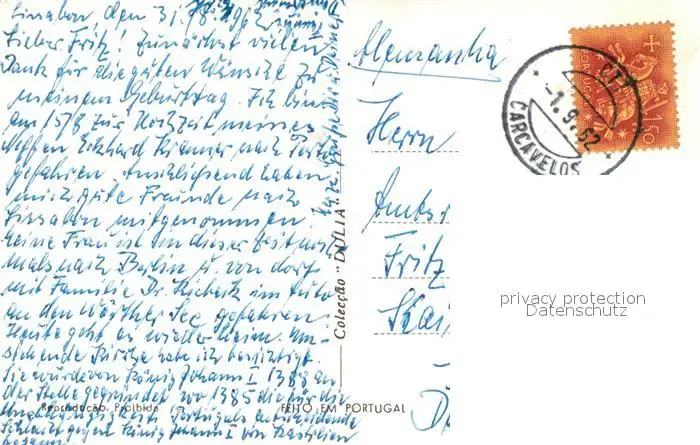 Lissabon, den 31.8.196
Lieber Fritz! Zunächst vielen
Dank für die guten Wünsche zu
meinem Geburtstag. Ich bin
am 15/8 zur Hochzeit meines
Neffen Eckhard Krämer nach
gefahren. Anschließend haben
mich gute Freunde nach
Lissabon mitgenommen.
Meine Frau ist in dieser Zeit
mals nach Berlin u. von dort
mit Familie Dr. im Auto
an den Wörther See gefahren.
Heute geht es wieder heim.
stehende Kirche habe ich besichtigt.
Sie wurde von König Johann I 1388 an
der Stelle gegründet, wo 1385 die für die
Unabhängigkeit Portugals entscheidende
Schlacht gegen König Johann I von Kastilien
Reprodução Proibida
FEITO EM PORTUGAL
Colecção "DÚLIA"
Alemanha
Herrn
Amts
Fritz
Kai
PORTUGAL
1$50
CTT
-1.9.62
CARCAVELOS
privacy protection
Datenschutz